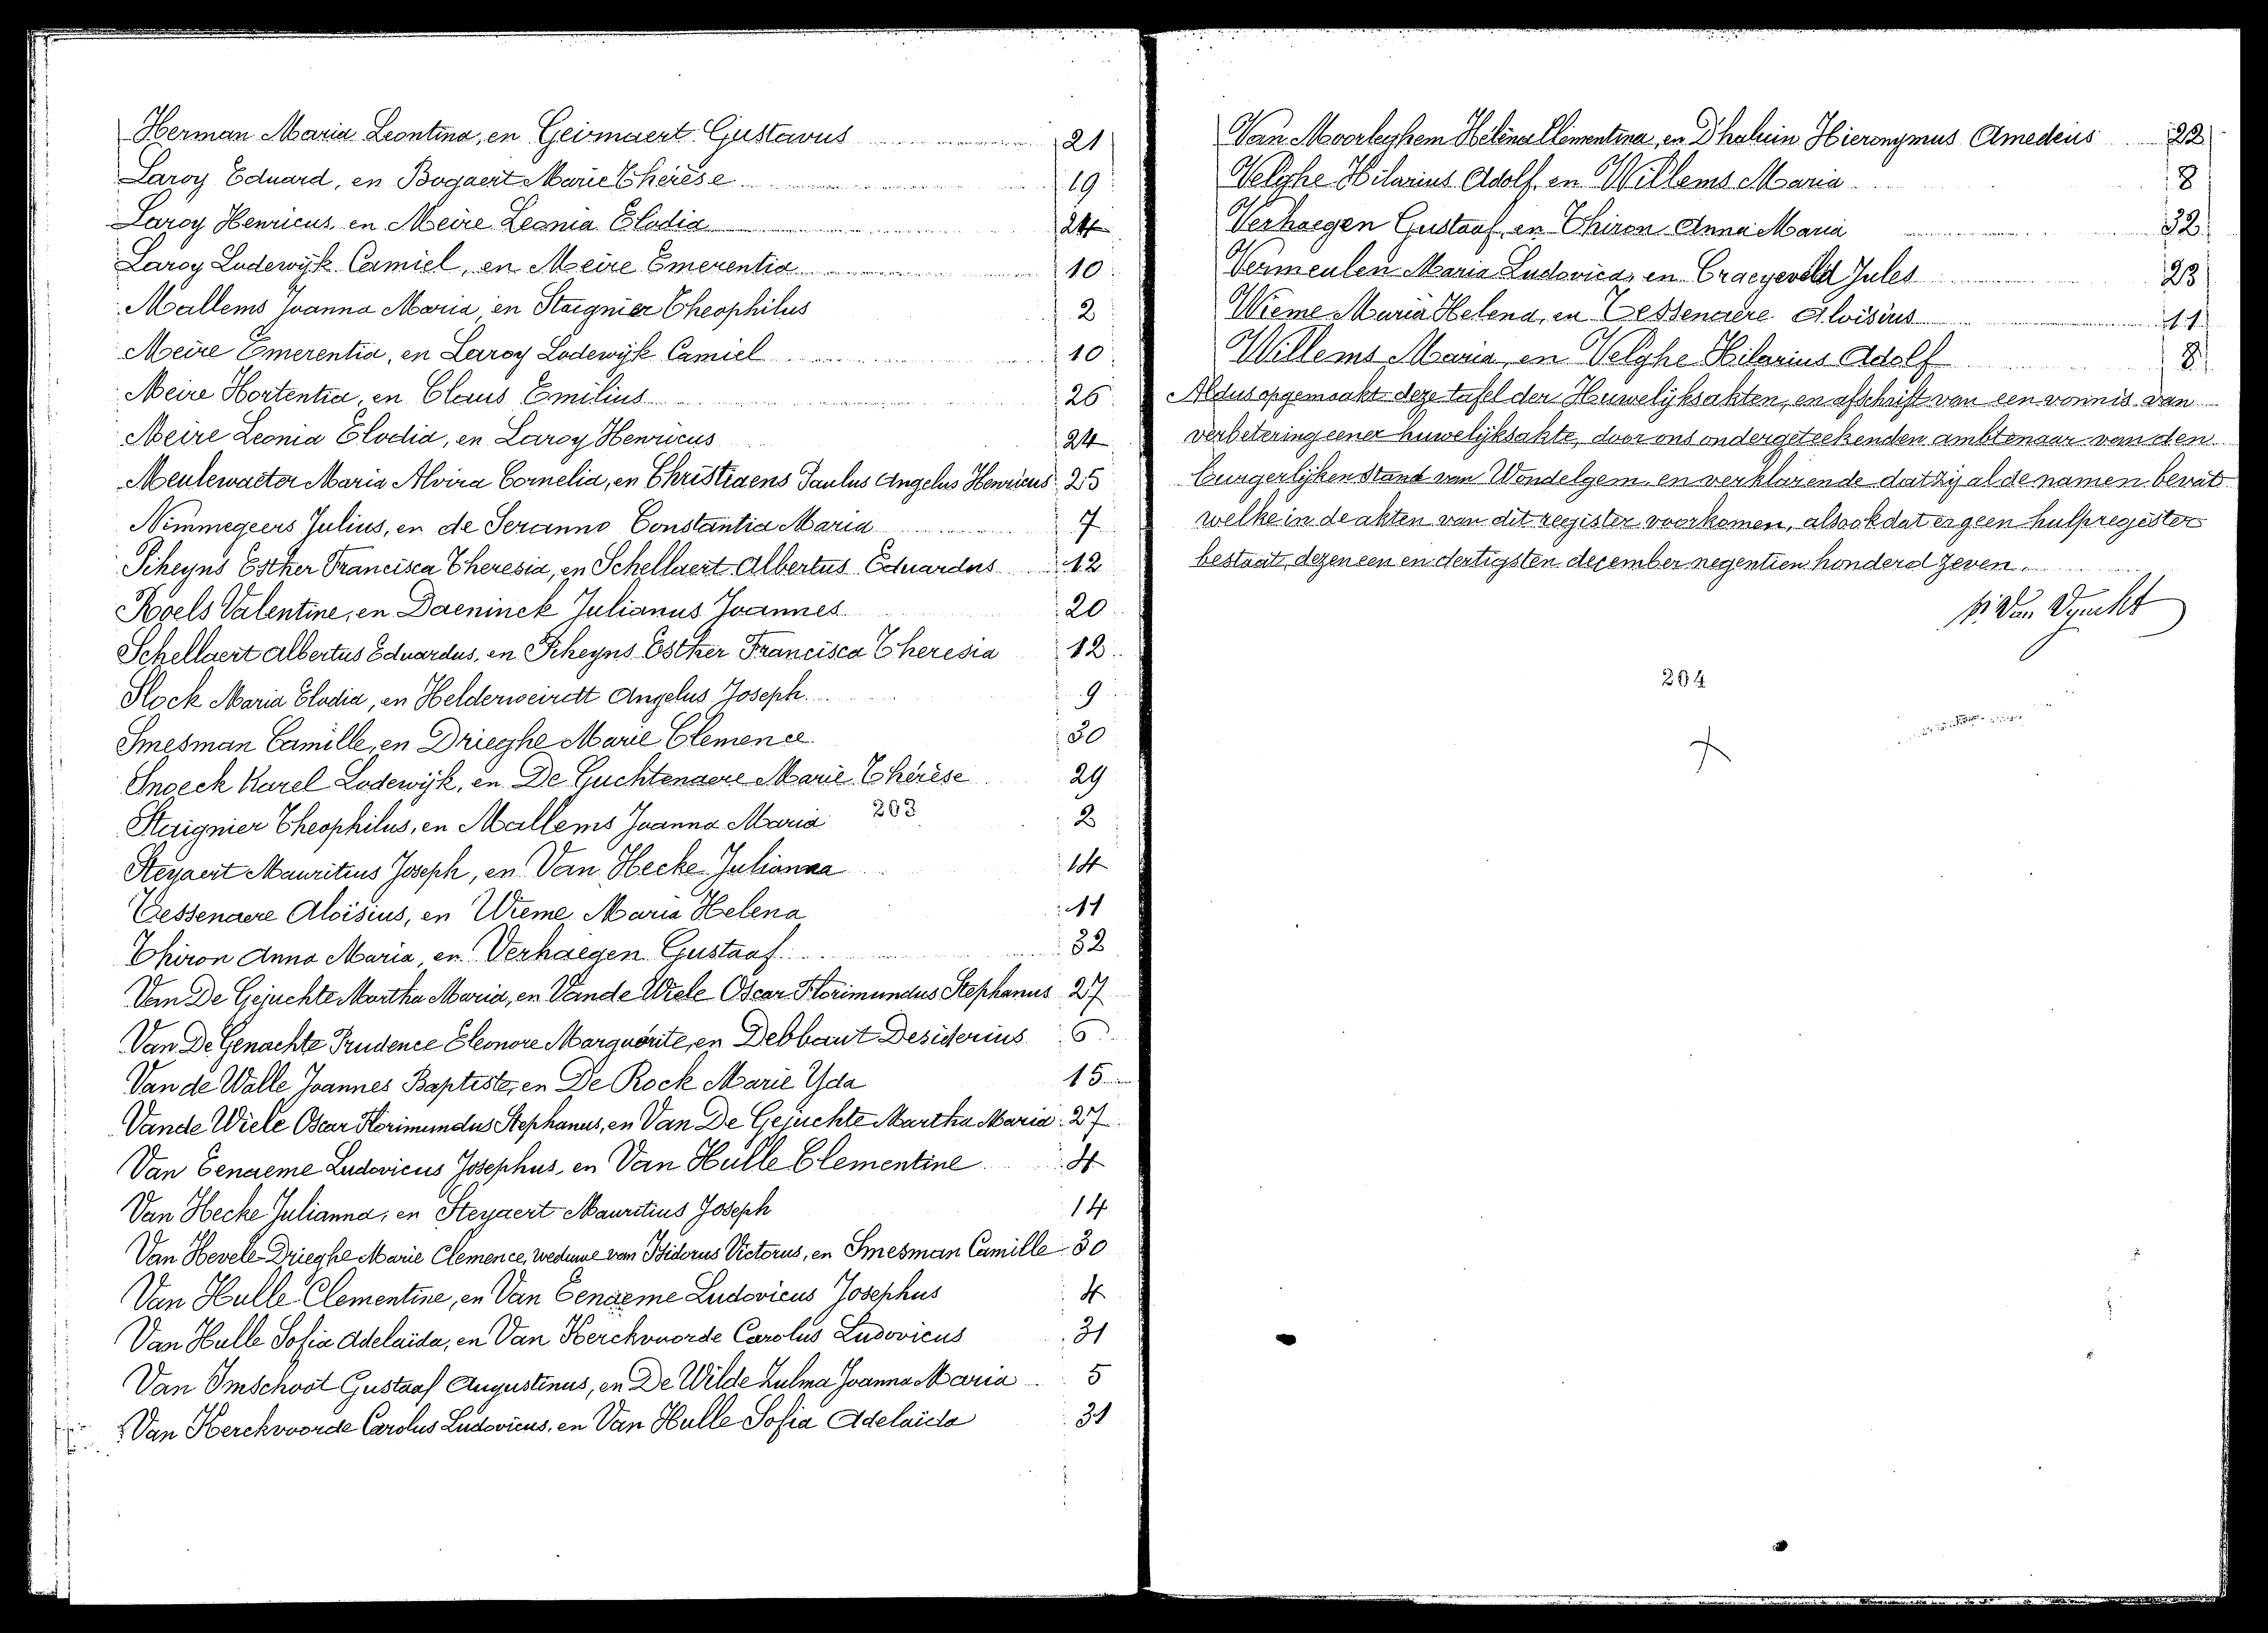 Herman Maria Leontina, en Geirnaert Gustavus 21
Laroy Eduard, en Bogaert Marie Thérèse 19
Laroy Henricus, en Meire Leonia Elodia 24
Laroy Lodewijk Camiel, en Meire Emerentia 10
Mallems Joanna Maria, en Staignier Theophilus 2
Meire Emerentia, en Laroy Lodewijk Camiel 10
Meire Hortentia, en Claus Emilius 26
Meire Leonia Elodia, en Laroy Henricus 24
Meulewaeter Maria Alvira Cornelia, en Christiaens Paulus Angelus Henricus 25
Nimmegeers Julius, en de Seranno Constantia Maria 7
Piheyns Esther Francisca Theresia, en Schellaert Albertus Eduardus 12
Roels Valentine, en Daeninck Julianus Joannes 20
Schellaert Albertus Eduardus, en Piheyns Esther Francisca Theresia 12
Slock Maria Elodia, en Helderweirdt Angelus Joseph 9
Smesman Camille, en Drieghe Marie Clemence 30
Snoeck Karel Lodewijk, en De Guchtenaere Marie Thérèse 29
Staignier Theophilus, en Mallems Joanna Maria 203 2
Steyaert Mauritius Joseph, en Van Hecke Julianna 14
Tessenaere Aloïsius, en Wieme Maria Helena 11
Thiron Anna Maria, en Verhaegen Gustaaf 32
Van De Gejuchte Martha Maria, en Vande Wiele Oscar Florimundus Stephanus 27
Van De Genachte Prudence Eleonore Marguerite, en Debbaut Desiderius 6
Van de Walle Joannes Baptiste, en De Rock Marie Yda 15
Vande Wiele Oscar Florimundus Stephanus, en Van De Gejuchte Martha Maria 27
Van Eenaeme Ludovicus Josephus, en Van Hulle Clementine 4
Van Hecke Julianna, en Steyaert Mauritius Joseph 14
Van Hevele Drieghe Marie Clemence, weduwe van Isidorus Victorus, en Smesman Camille 30
Van Hulle Clementine, en Van Eenaeme Ludovicus Josephus 4
Van Hulle Sofia Adelaida, en Van Kerckvoorde Carolus Ludovicus 31
Van Imschoot Gustaaf Augustinus, en De Wilde Zulma Joanna Maria 5
Van Kerckvoorde Carolus Ludovicus, en Van Hulle Sofia Adelaida 31
Van Moorleghem Helena Clementina, en D'haluin Hieronymus Amedeus 22
Velghe Hilarius Adolf, en Willems Maria 8
Verhaegen Gustaaf, en Thiron Anna Maria 32
Vermeulen Maria Ludovica, en Craeyeveld Jules 23
Wieme Maria Helena, en Tessenaere Aloïsius 11
Willems Maria, en Velghe Hilarius Adolf 8
Aldus opgemaakt deze tafel der Huwelijksakten, en afschrift van een vonnis van
verbetering eener huwelijksakte, door ons ondergeteekenden ambtenaar van den
burgerlijken stand van Wondelgem, en verklarende dat zij al de namen bevat
welke in de akten van dit register voorkomen, alsook dat er geen hulpregister
bestaat, dezen een en dertigsten december negentien honderd zeven.
204